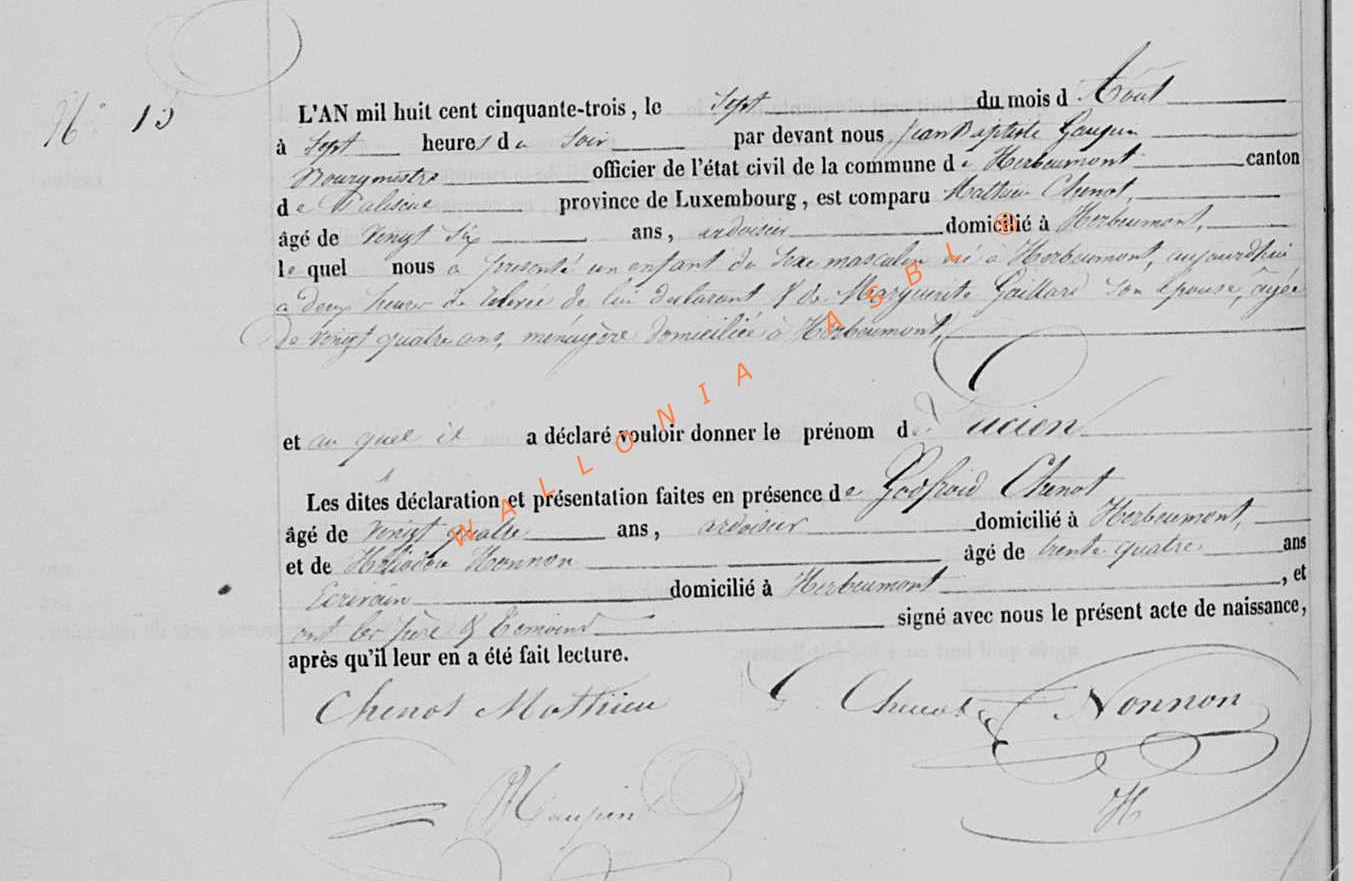 N° 15
L'AN mil huit cent cinquante-trois, le Sept du mois d'Aout
à Sept heures du Soir par devant nous Jean Baptiste
Bourgmestre officier de l'état civil de la commune de Herbeumont canton
de Paliseul province de Luxembourg, est comparu Mathieu Chenot,
âgé de Vingt Six ans, ardoisier domicilié à Herbeumont,
le quel nous a présenté un enfant du Sexe masculin né à Herbeumont, aujourd'hui
a deux heures de relevée de lui declarant & de Marguerite Gaillard Son epouse, agée
de vingt quatre ans, ménagère domiciliée à Herbeumont,
et au quel il a déclaré vouloir donner le prénom de Lucien
Les dites déclaration et présentation faites en présence de Godfroid Chenot
âgé de Vingt quatre ans, ardoisier domicilié à Herbeumont,
et de Héliodore Nonnon âgé de trente quatre ans
Ecrivain domicilié à Herbeumont, et
ont les père & temoins signé avec nous le présent acte de naissance,
après qu'il leur en a été fait lecture.
Chenot Mathieu G. Chenot Nonnon
H
WALLONIA ASBL ®